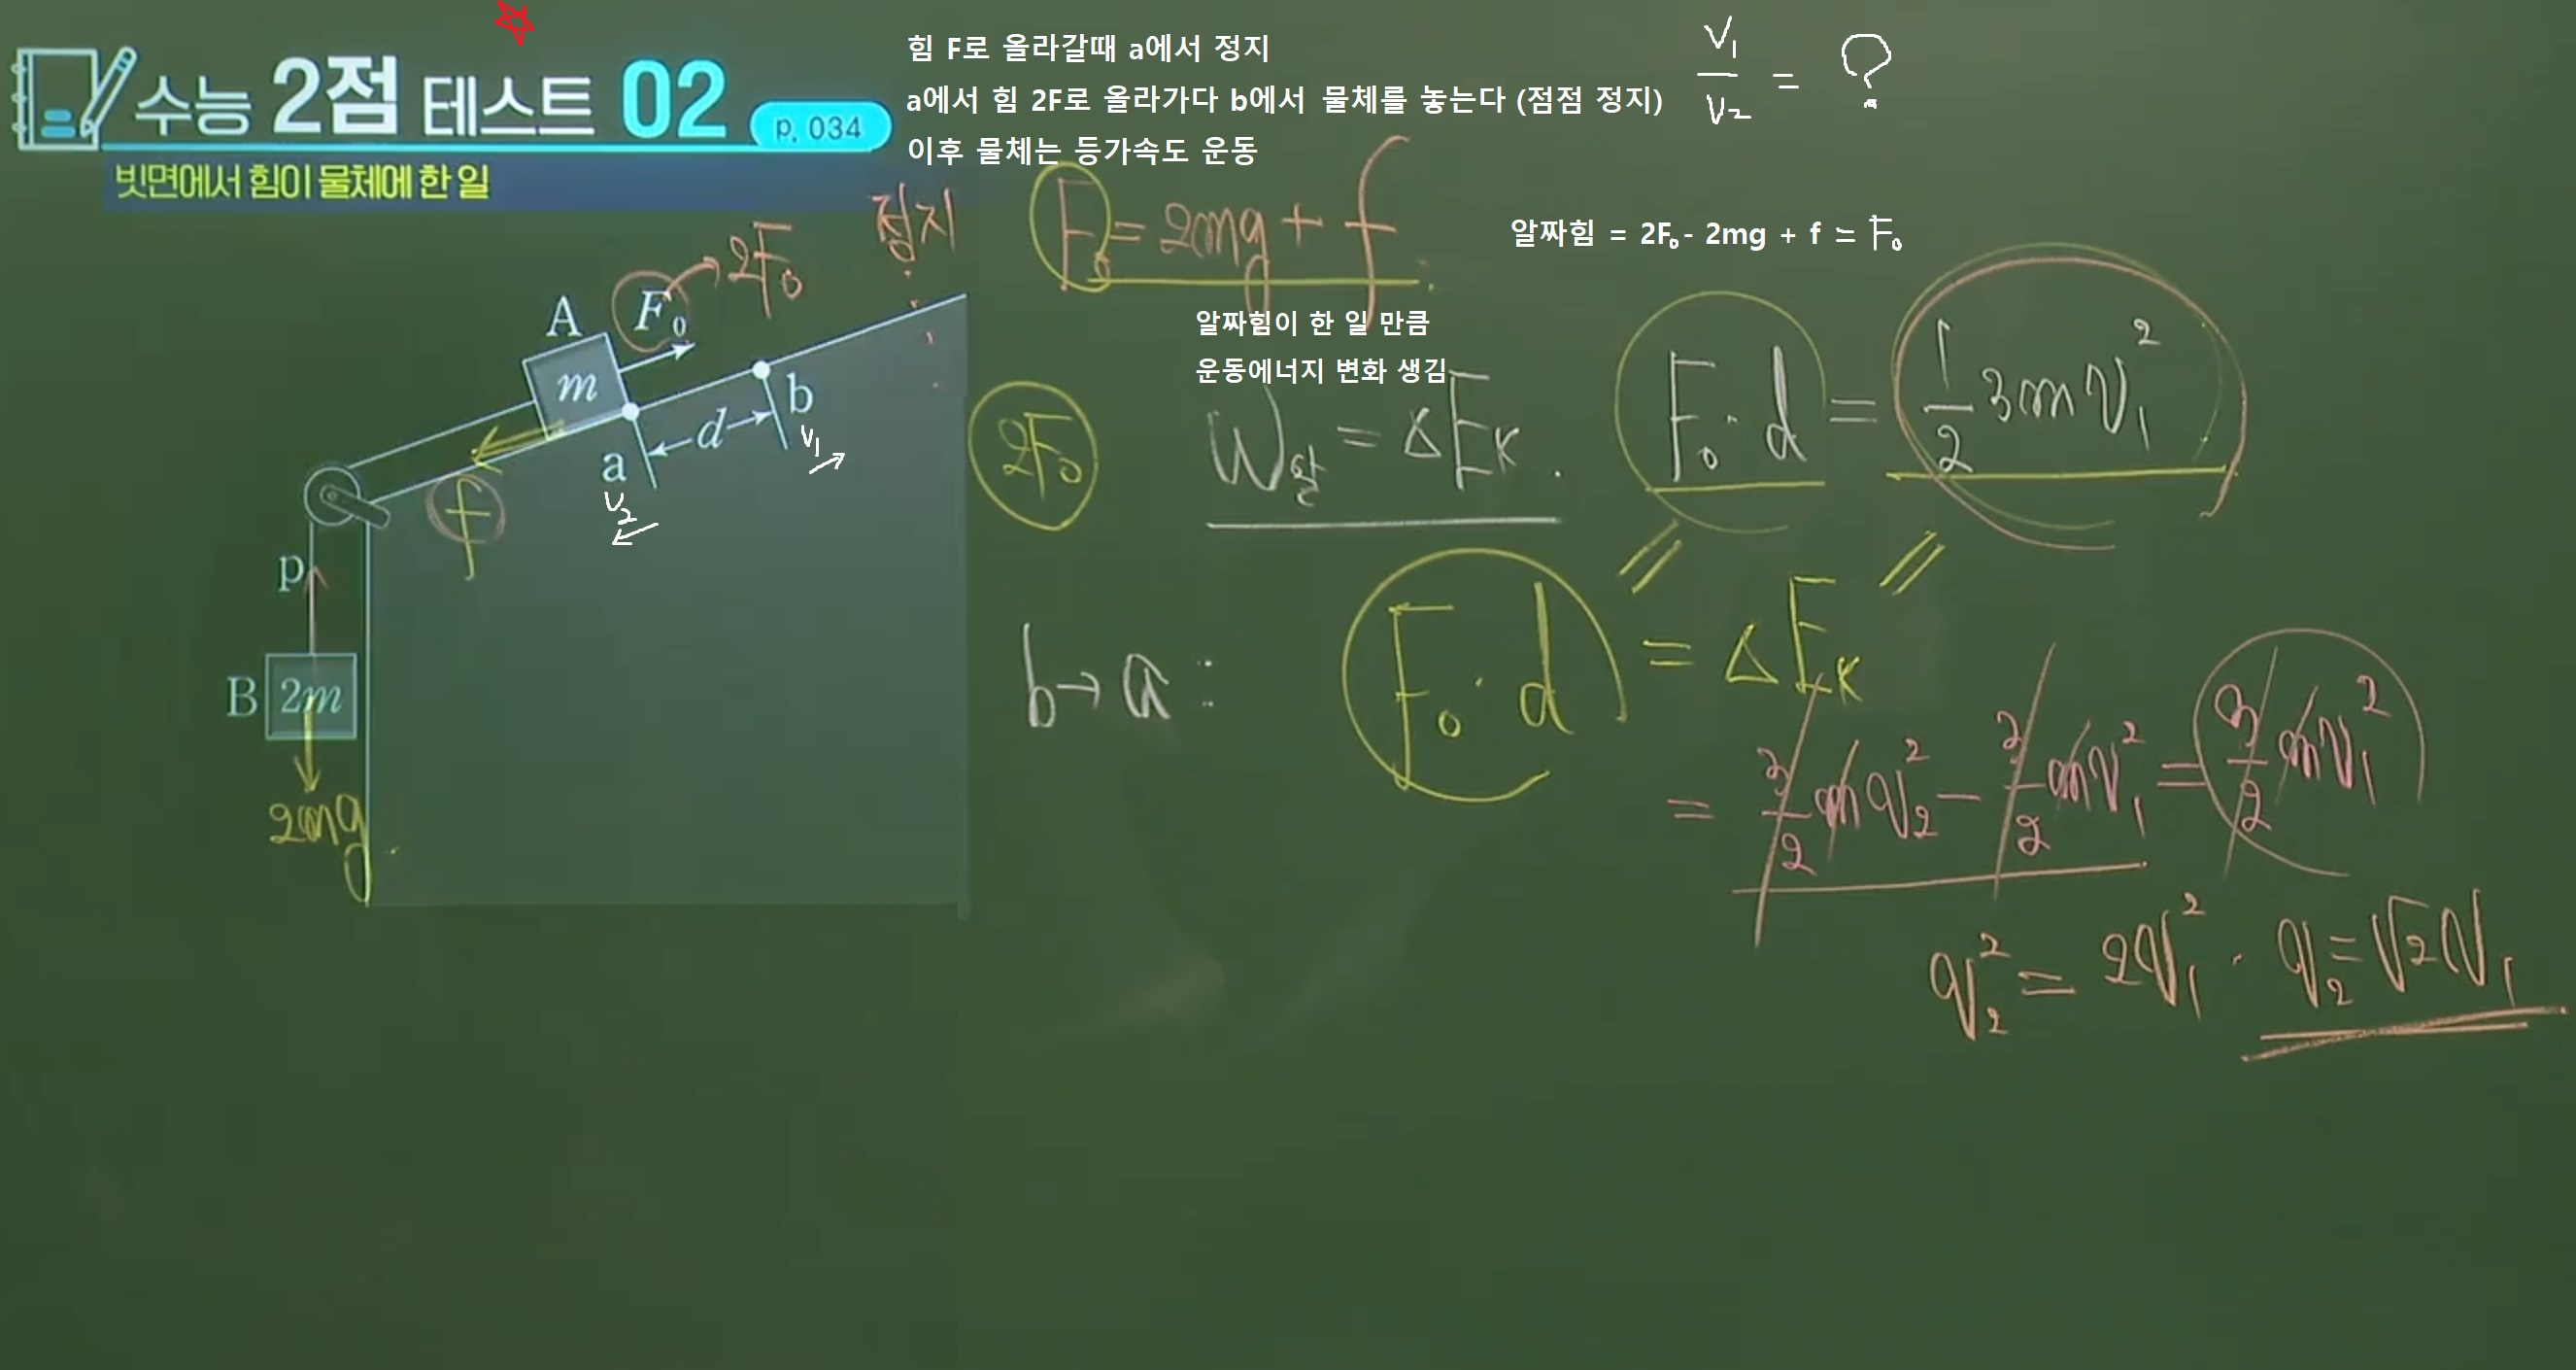 수능 2점 테스트 02
p. 034
빗면에서 힘이 물체에 한 일
힘 F로 올라갈때 a에서 정지
a에서 힘 2F로 올라가다 b에서 물체를 놓는다 (점점 정지)
이후 물체는 등가속도 운동
V₁/V₂ = ?
정지
F₀ = 2mg + f
알짜힘 = 2F₀ - 2mg + f = F₀
2F₀
A
F₀
m
a
d
b
V₁
V₂
f
p
B
2m
2mg
알짜힘이 한 일 만큼
운동에너지 변화 생김
2F₀
W알 = ΔEK.
F₀·d = 1/2 3mV₁²
b→a :
F₀·d = ΔEK
= 3/2 mV₂² - 3/2 mV₁² = 3/2 mV₁²
V₂² = 2V₁². V₂ = √2V₁